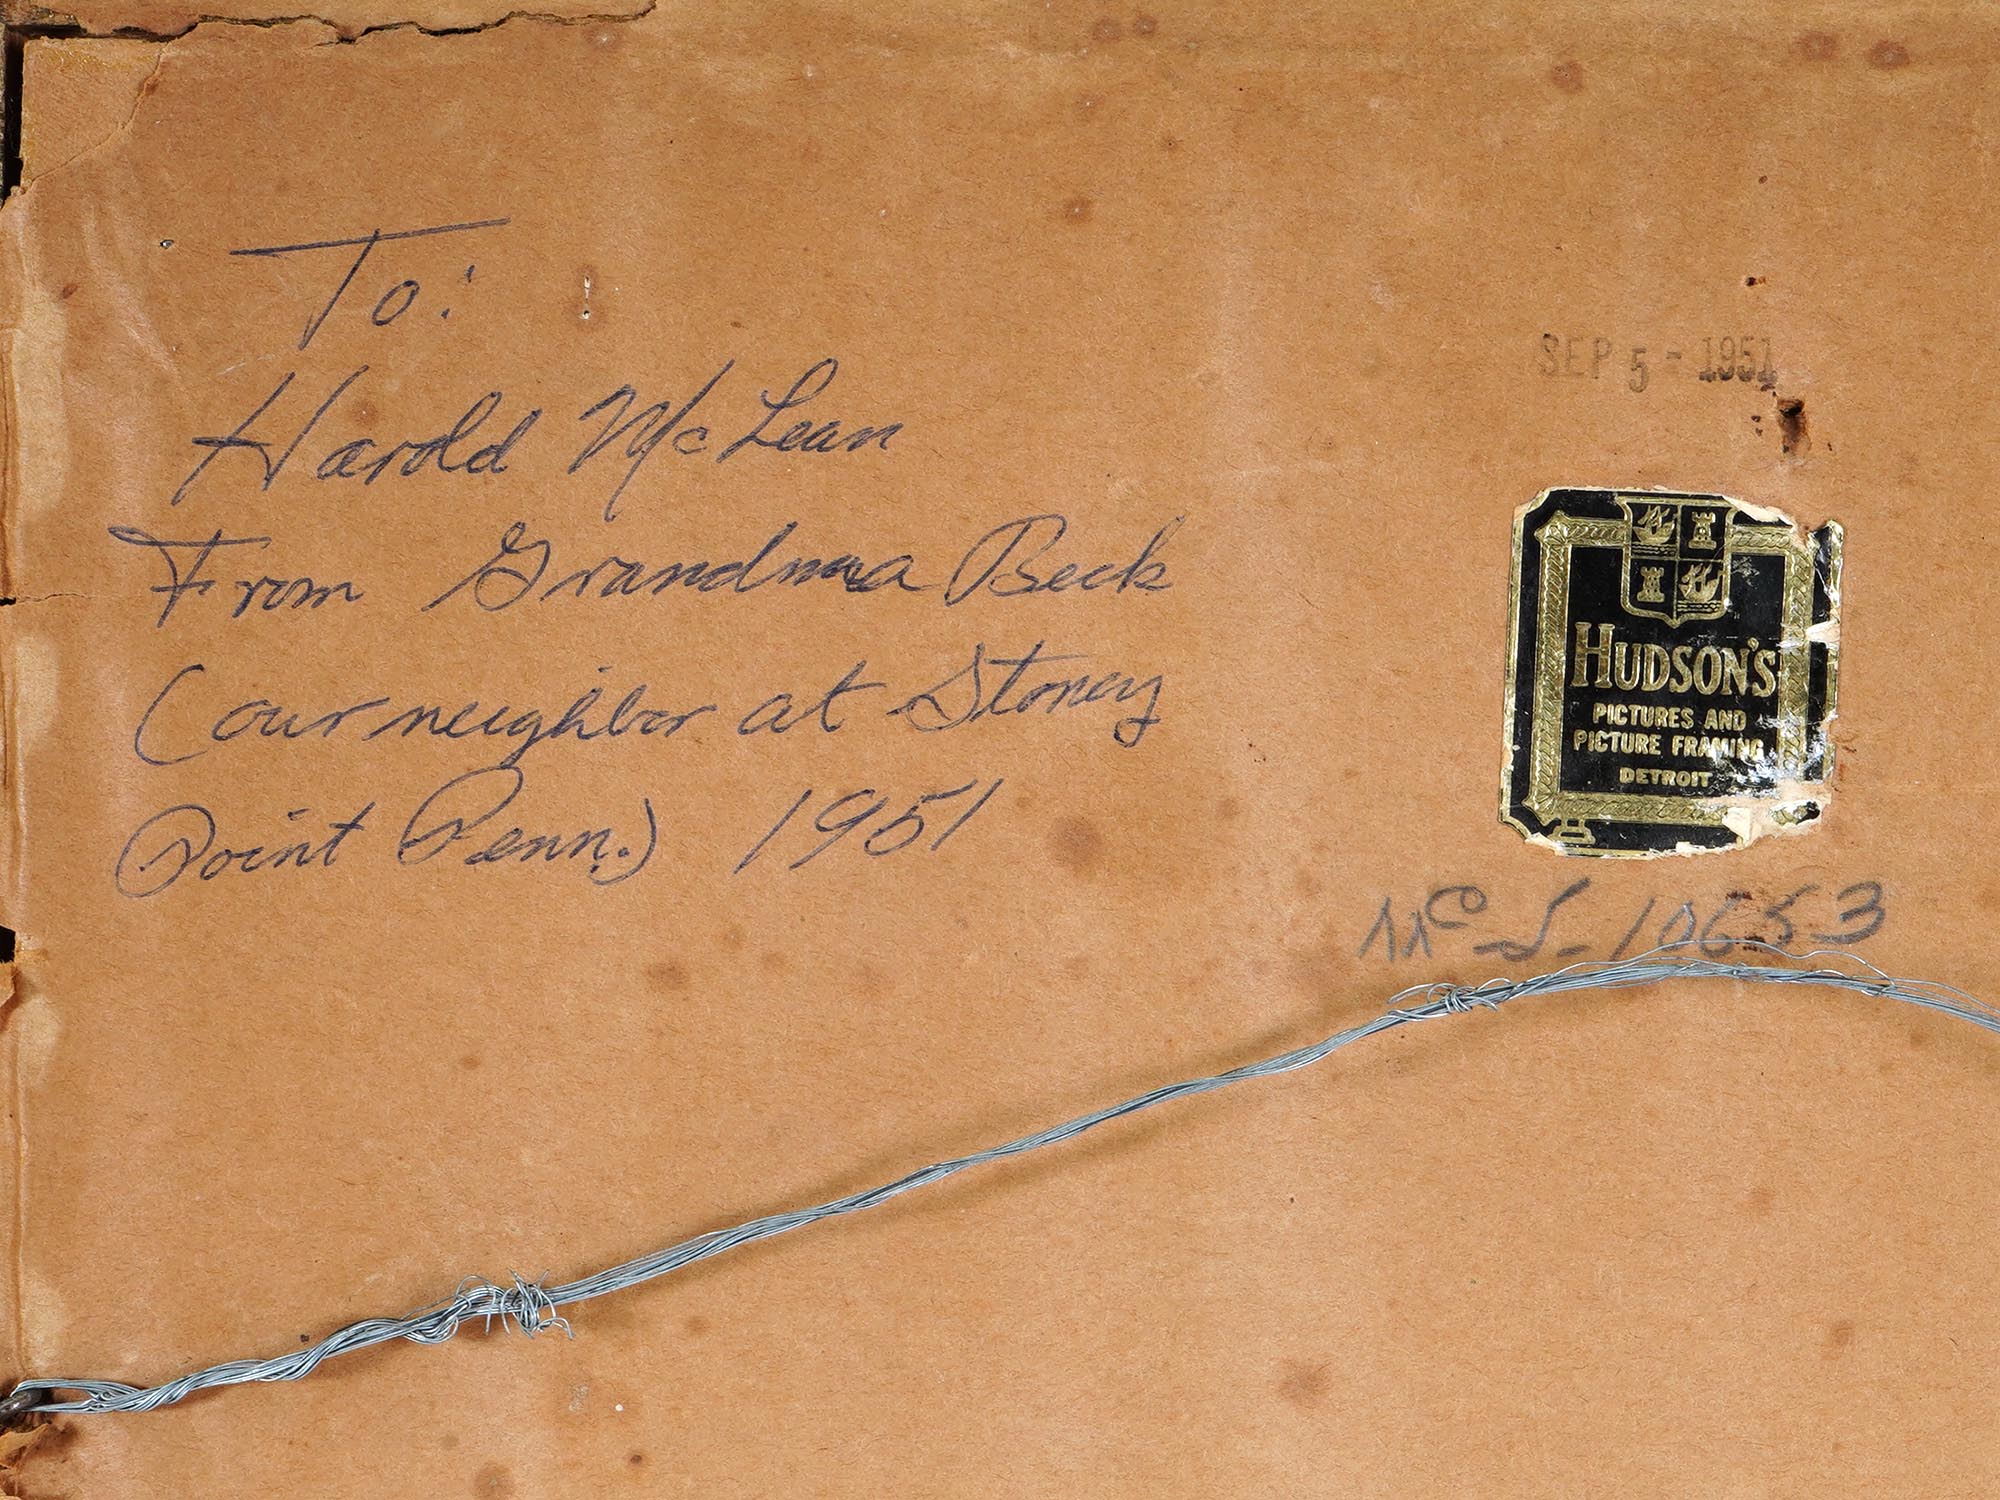 To:
Harold McLean
From Grandma Beck
(our neighbor at Stoney
Point Penn.) 1951
SEP 5 - 1951
HUDSON'S
PICTURES AND
PICTURE FRAMING
DETROIT